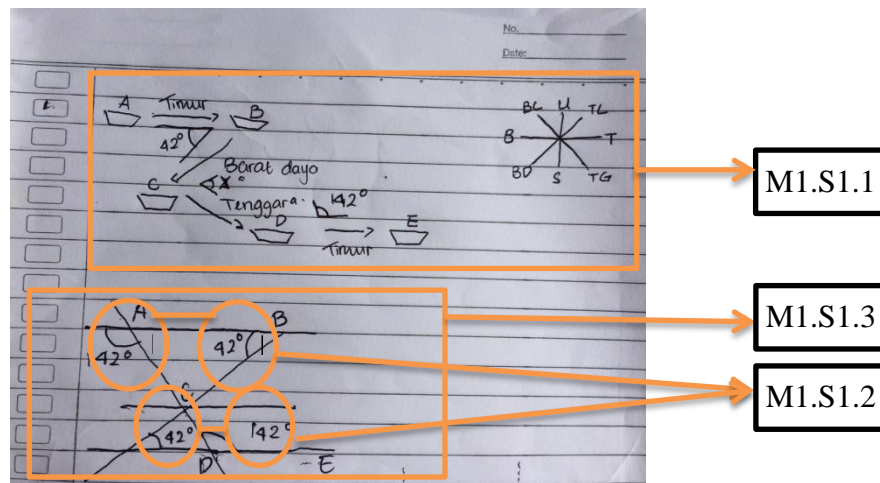 No.
Date:
1.
A Timur B
42°
Barat daya
C X°
Tenggara. 142°
D E
Timur
BL U TL
B T
BD S TG
M1.S1.1
A B
142° 42°
C
42° 142°
D E
M1.S1.3
M1.S1.2